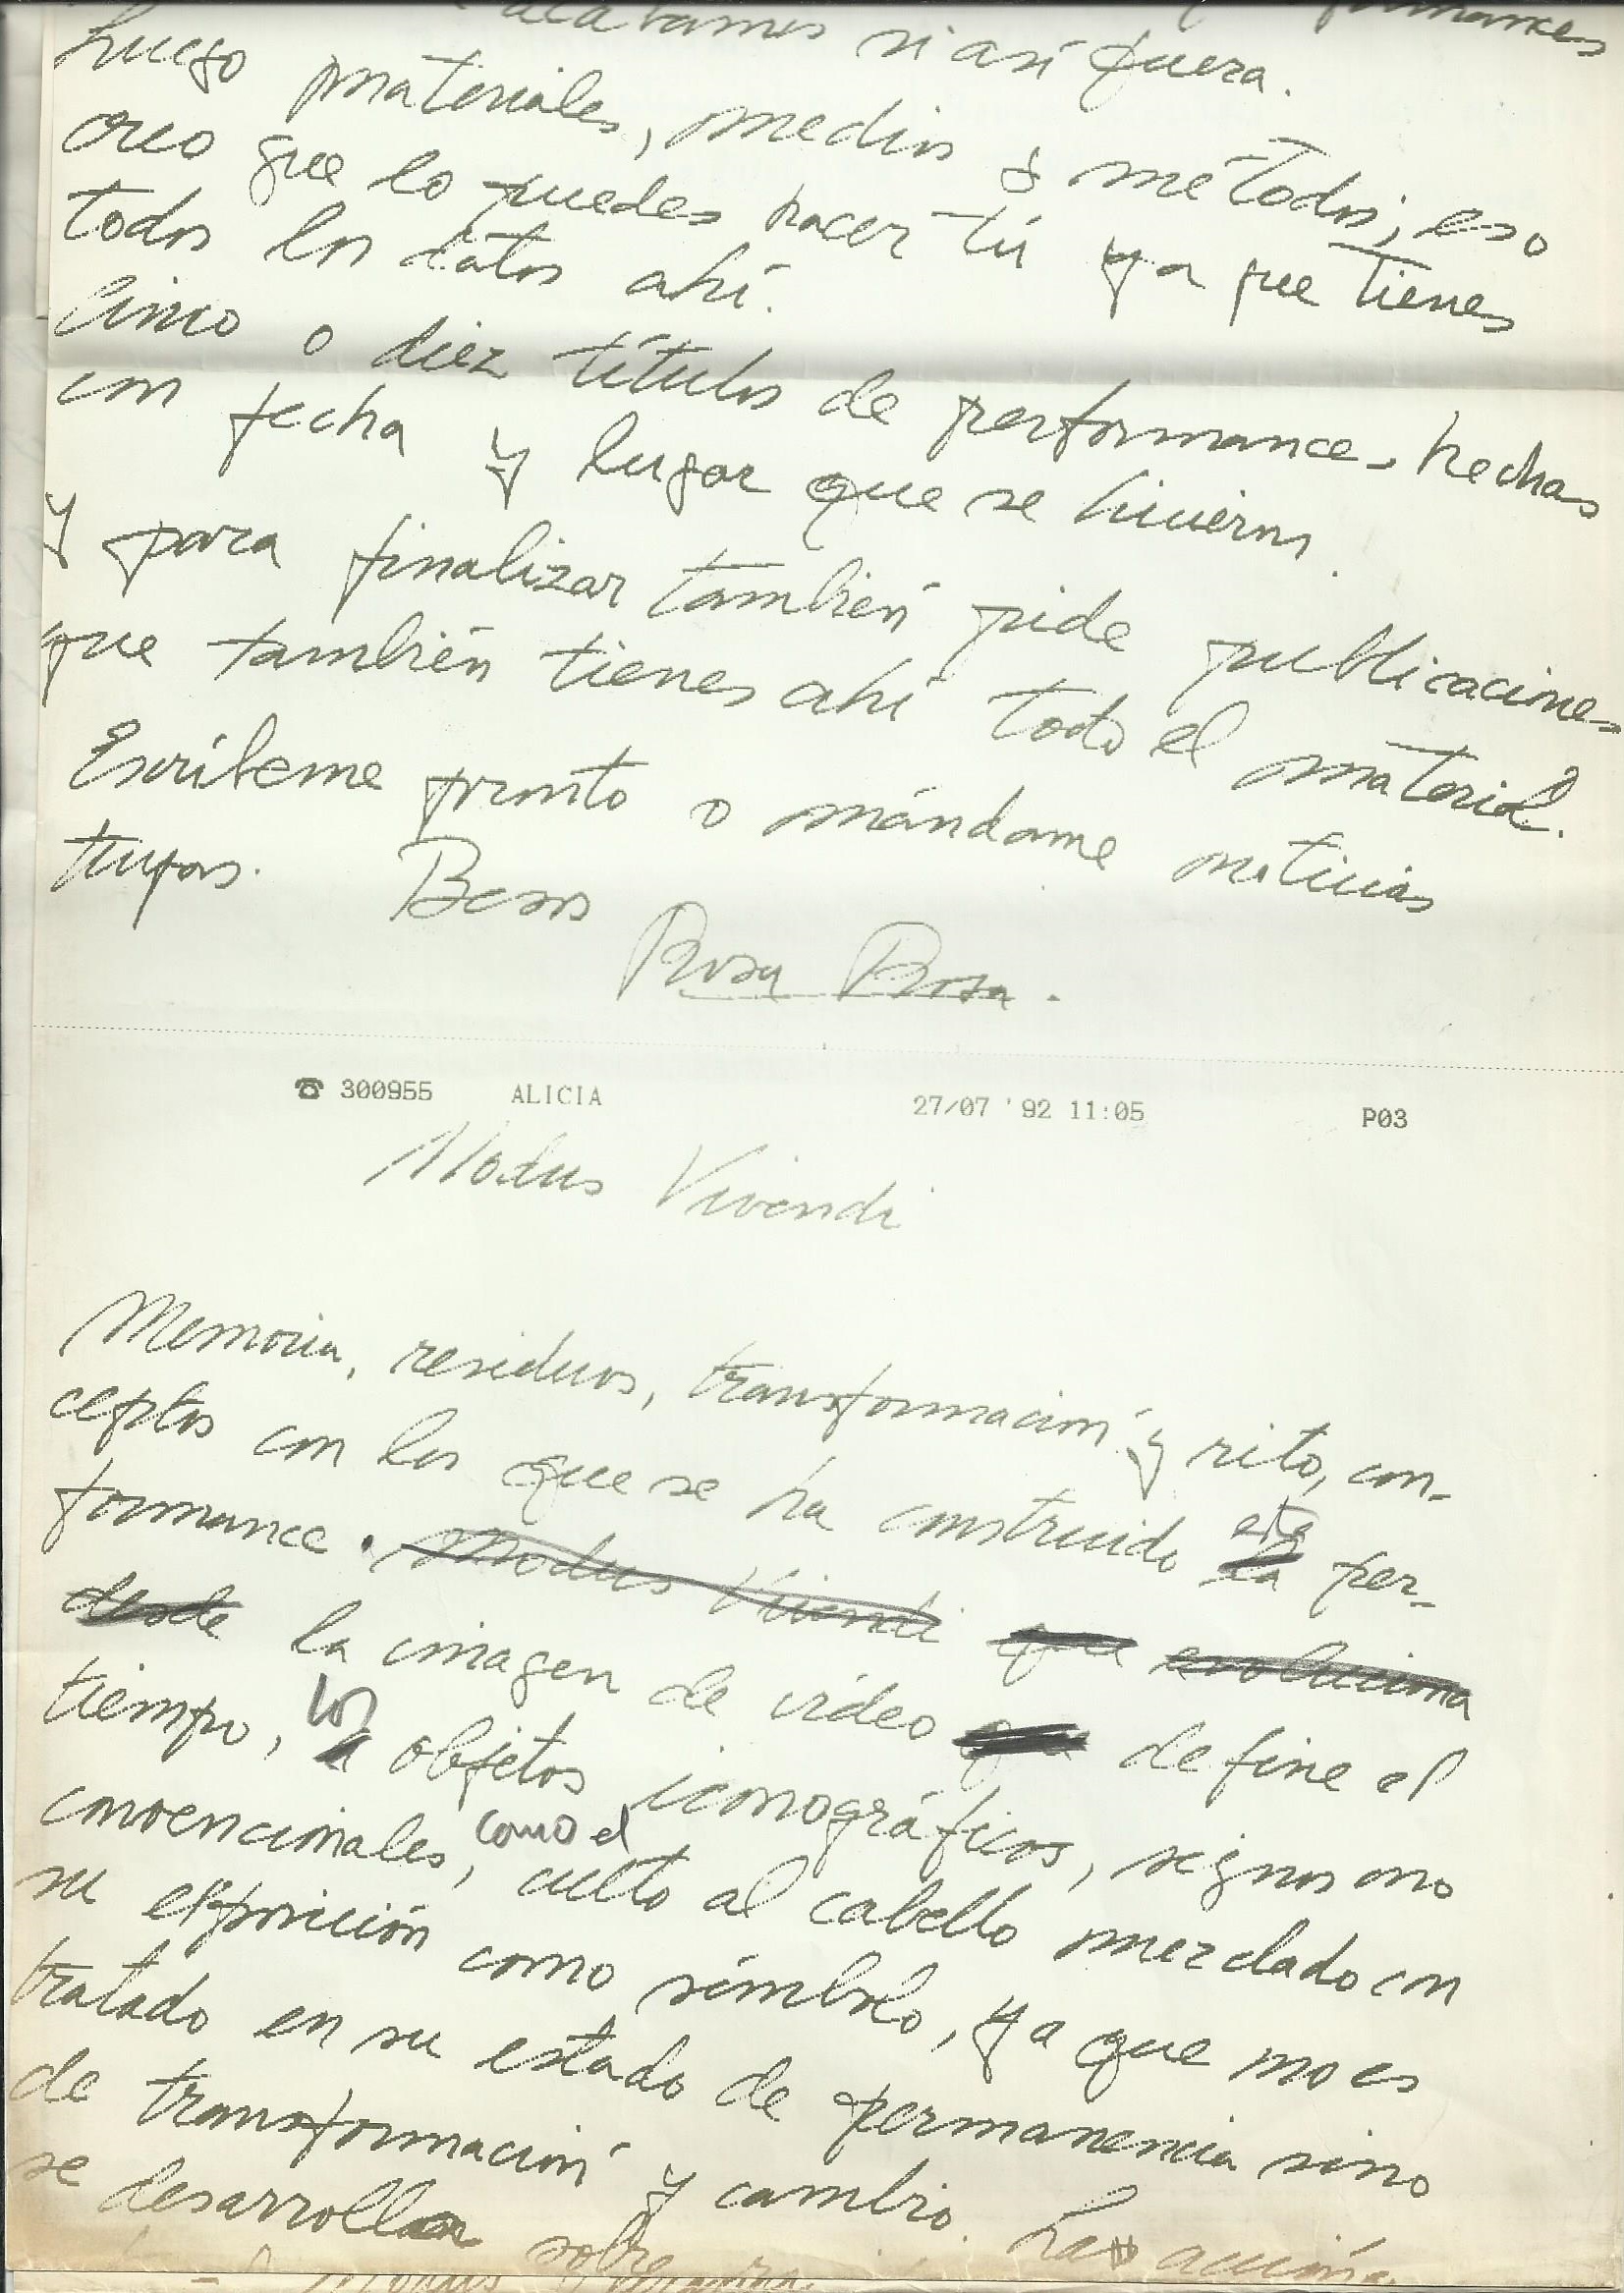 acabamos si así fuera.
Luego materiales, medios ó métodos; eso
creo que lo puedes hacer tú ya que tienes
todos los datos ahí.
Cinco o diez títulos de performances hechas
con fecha y lugar que se hicieron.
y para finalizar también pide publicaciones
que también tienes ahí todo el material.
Escríbeme pronto o mándame noticias
tuyas. Besos
Rosa Rosa.
☎ 300955 ALICIA 27/07 '92 11:05 P03
Modus Vivendi
Memoria, residuos, transformación y rito, con-
ceptos con los que se ha construido esta la per-
formance. Modus Vivendi que evoluciona
desde la imagen de vídeo que define el
tiempo, los objetos iconográficos, signos no
convencionales, como el culto al cabello mezclado con
su exposición como símbolo, ya que no es
tratado en su estado de permanencia sino
de transformación y cambio. La acción
se desarrolla sobre